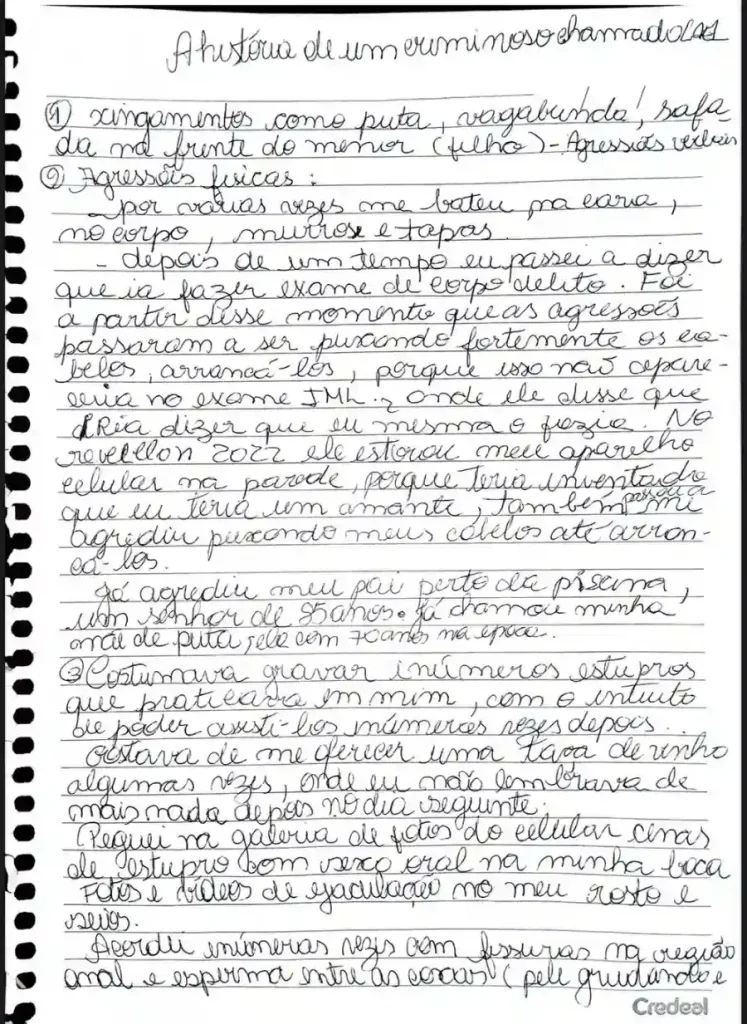 A história de um criminoso chamado
① xingamentos como puta, vagabunda, safa
da na frente do menor (filho) - Agressões verbais
② Agressões físicas:
- por várias vezes me bateu na cara,
no corpo, murros e tapas.
- depois de um tempo eu passei a dizer
que ia fazer exame de corpo delito. Foi
a partir desse momento que as agressões
passaram a ser puxando fortemente os ca-
belos, arrancá-los, porque isso não apare-
ceria no exame IML., onde ele disse que
iRia dizer que eu mesma o fazia. No
reveillon 2022 ele estorou meu aparelho
celular na parede, porque teria inventado
que eu teria um amante, também passou a mi
agrediu puxando meus cabelos até arran-
cá-los.
Já agrediu meu pai perto da piscina,
um senhor de 85 anos. Já chamou minha
mãe de puta, ela com 70 anos na época.
③ Costumava gravar inúmeros estupros
que praticava em mim, com o intuito
de poder assisti-los inúmeras vezes depois.
Gostava de me oferecer uma taça de vinho
algumas vezes, onde eu não lembrava de
mais nada depois no dia seguinte.
Peguei na galeria de fotos do celular cenas
de estupro com sexo oral na minha boca
Fotos e vídeos de ejaculação no meu rosto e
seios.
Acordei inúmeras vezes com fissuras na região
anal e esperma entre as coxas (pele grudando e
Credeal